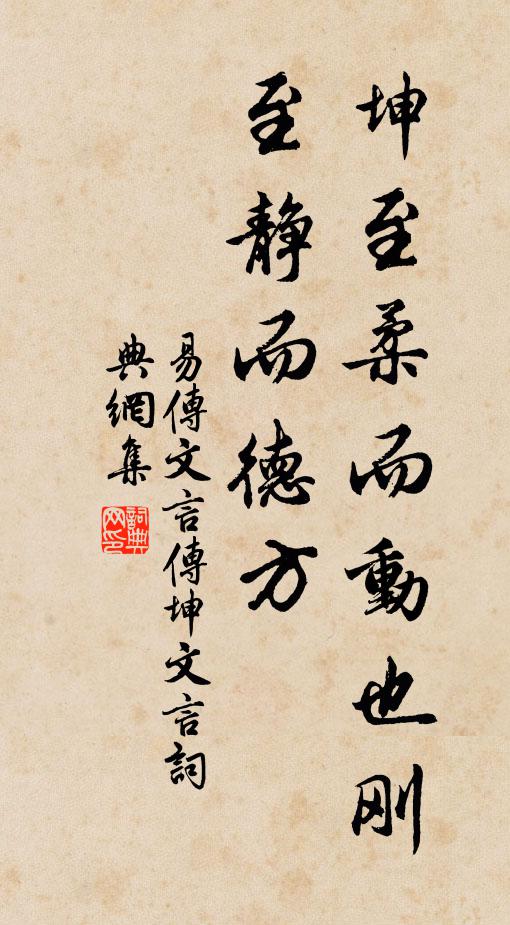 坤至柔而動也刚
至静而德方
易傳文言傳坤文言詞
典網集
詞典
网印